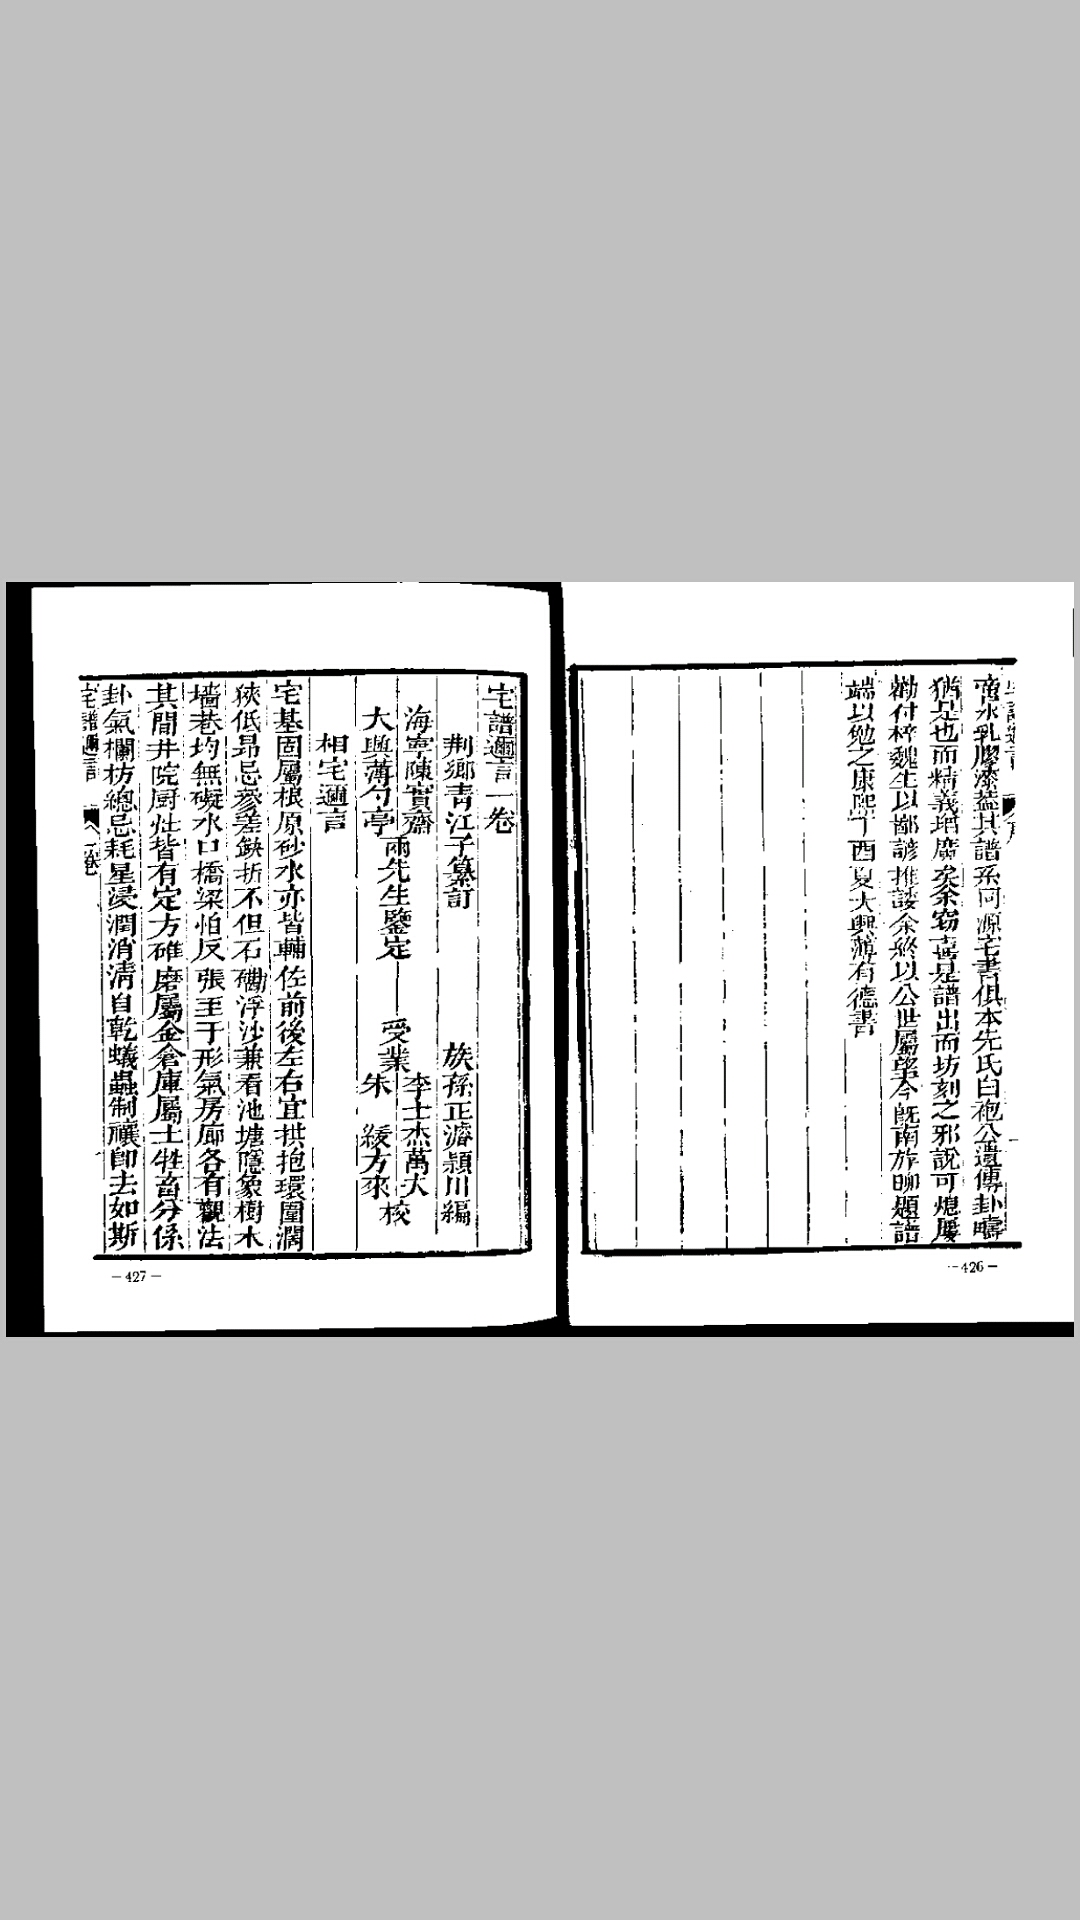 啻水乳膠漆葢其譜系同源宅書俱本先氏白袍公遺傳卦疇
猶是也而精義增廣矣余竊喜是譜出而坊刻之邪說可熄屢
勸付梓魏生以鄙諺推諉余終以公世屬望今既南旋聊題譜
端以勉之康熙丁酉夏大興薄有德書
－426－
宅譜邇言一卷
荆鄉青江子纂訂　族孫正濬潁川編
海寧陳實齋
大興薄勺亭
兩先生鑒定
受業
李士杰萬大
朱　綾方來
校
相宅邇言
宅基固屬根原砂水亦皆輔佐前後左右宜拱抱環圍濶
狹低昂忌參差缺折不但石磡浮沙兼看池塘隱象樹木
墻巷均無礙水口橋梁怕反張至于形氣房廊各有觀法
其間井院厨灶皆有定方碓磨屬金倉庫屬土牲畜分係
卦氣欄枋總忌耗星浸潤消淸自乾蟻蟲制禳卽去如斯
宅譜邇言
一卷
－427－